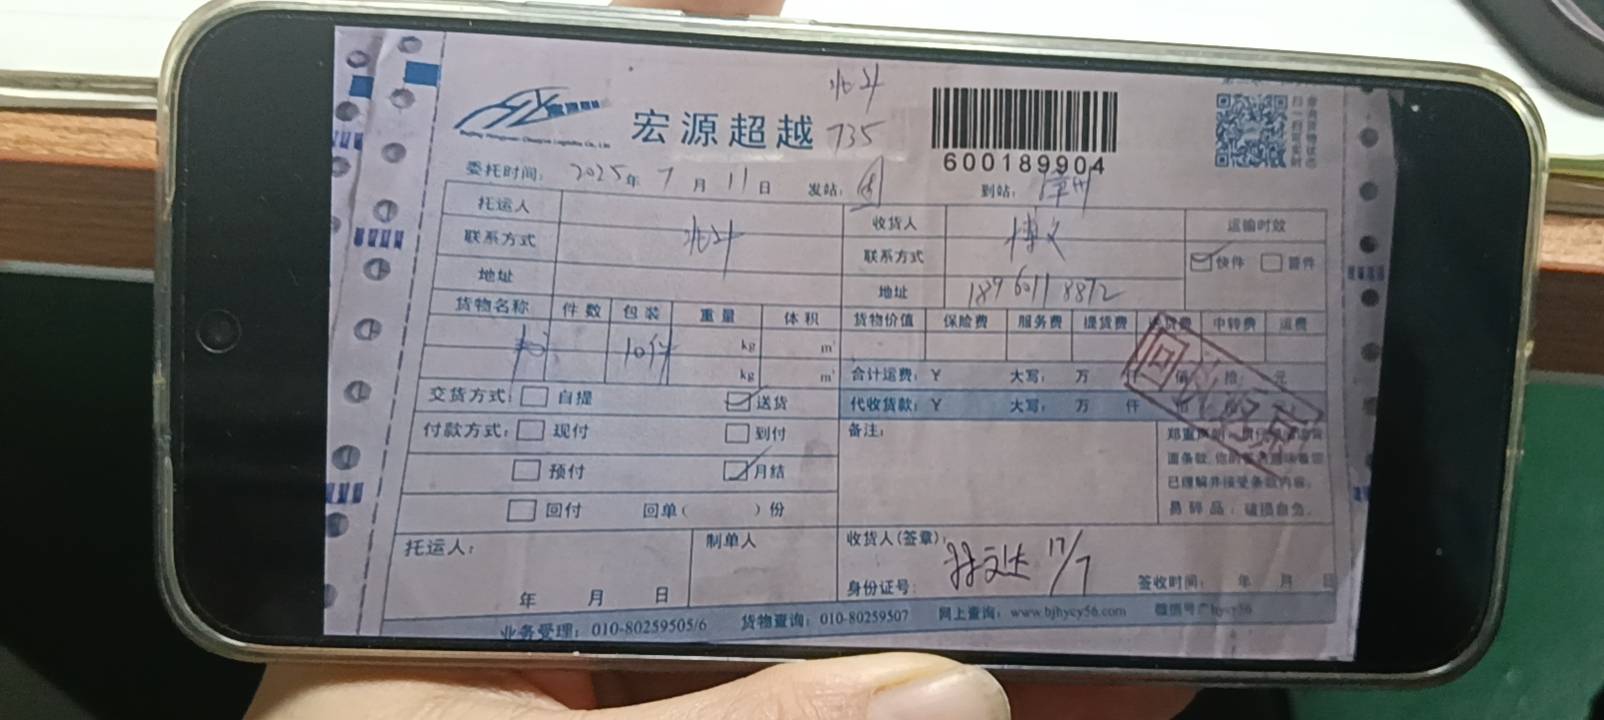 北斗
宏源超越 735
600189904
委托时间: 2025年 7月 11日 发站: 到站: 漳州
托运人 北斗 收货人 博文 运输时效
联系方式 联系方式 快件 普件
地址 地址 18960118872
货物名称 件数 包装 重量 体积 货物价值 保险费 服务费 提货费 送货费 中转费 运费
10件 kg m³
kg m³ 合计运费: ¥ 大写: 万 仟 佰 拾 元
交货方式: 自提 送货 代收货款: ¥ 大写: 万 仟 佰
付款方式: 现付 到付 备注:
预付 月结
已理解并接受条款内容。
回付 回单( )份 易碎品, 破损自负。
托运人: 制单人 收货人(签章): 17/7
年 月 日 身份证号: 签收时间: 年 月 日
业务受理: 010-80259505/6 货物查询: 010-80259507 网上查询: www.bjhycy56.com 微信号: hycy56